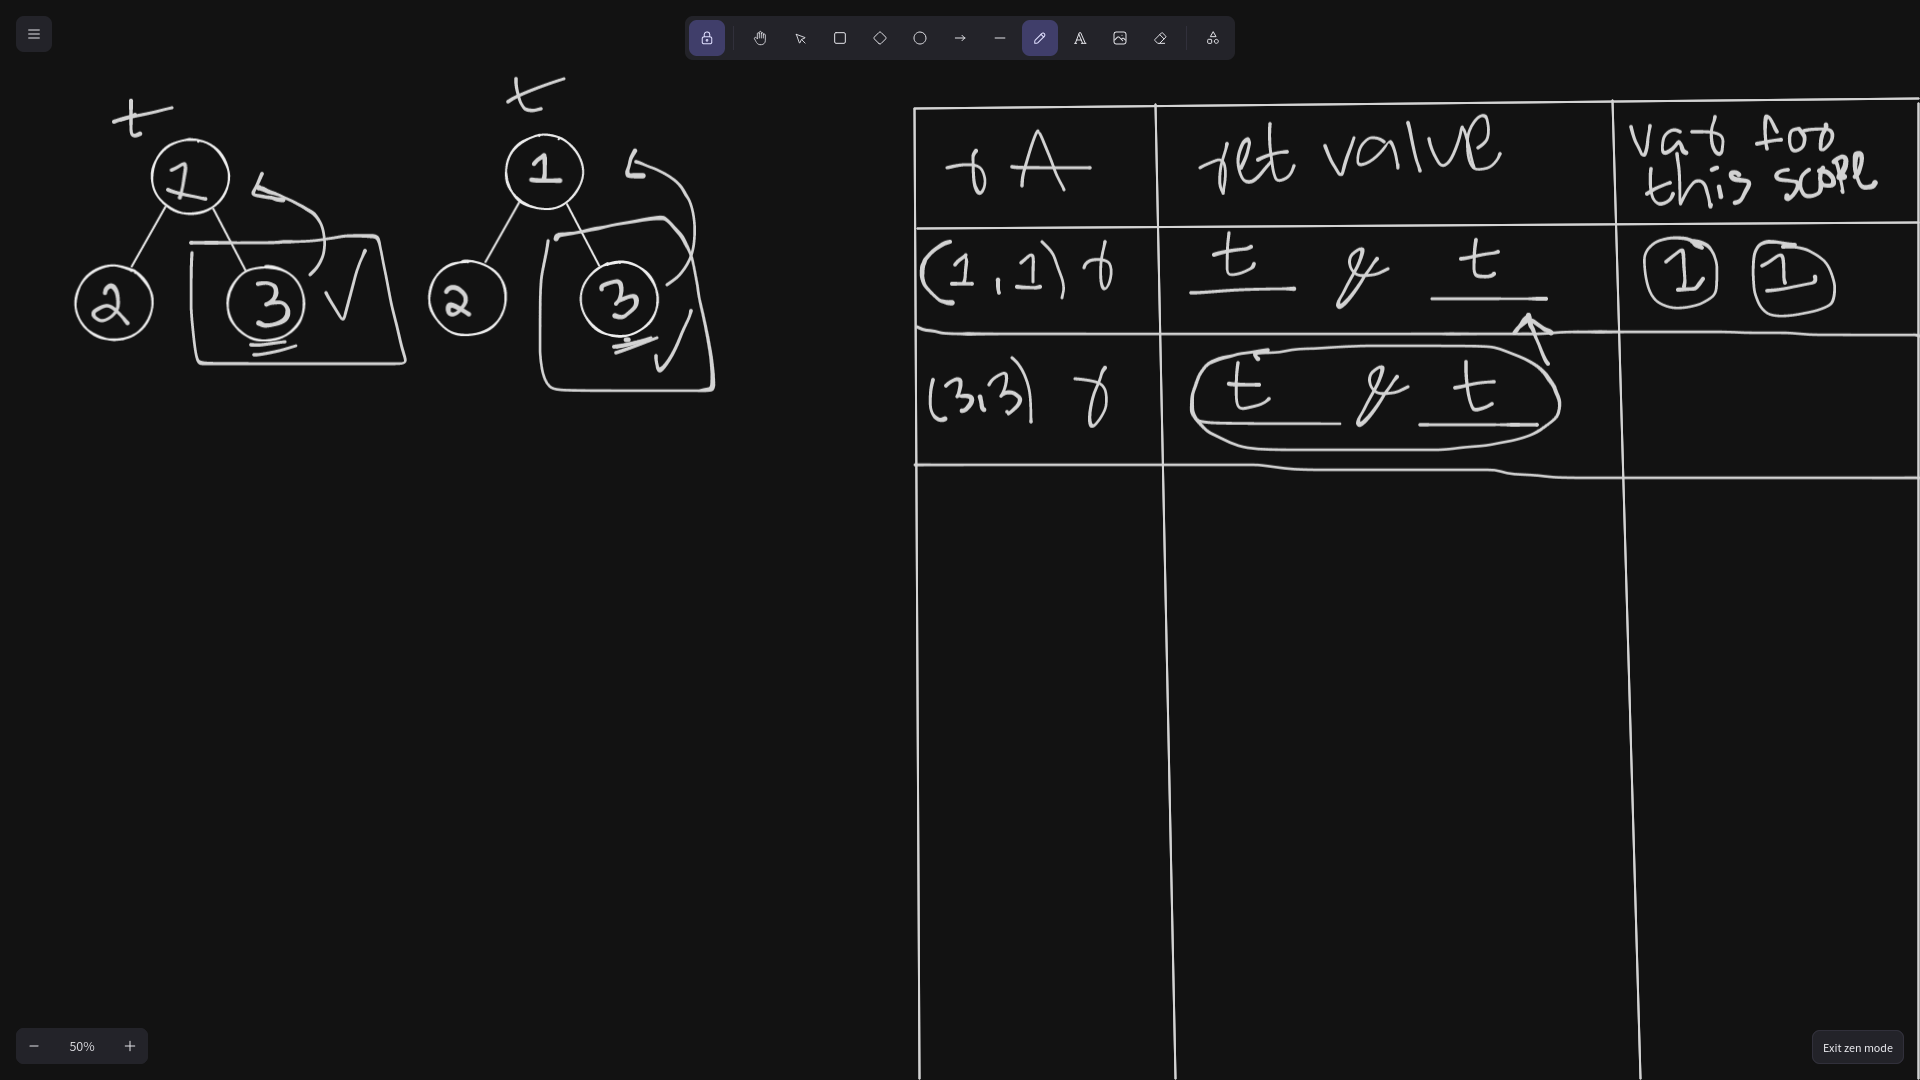 t
1
2
3
t
1
2
3
r A
ret value
var for
this scope
(1,1) r
t & t
1 1
(3,3) r
t & t
50%
Exit zen mode